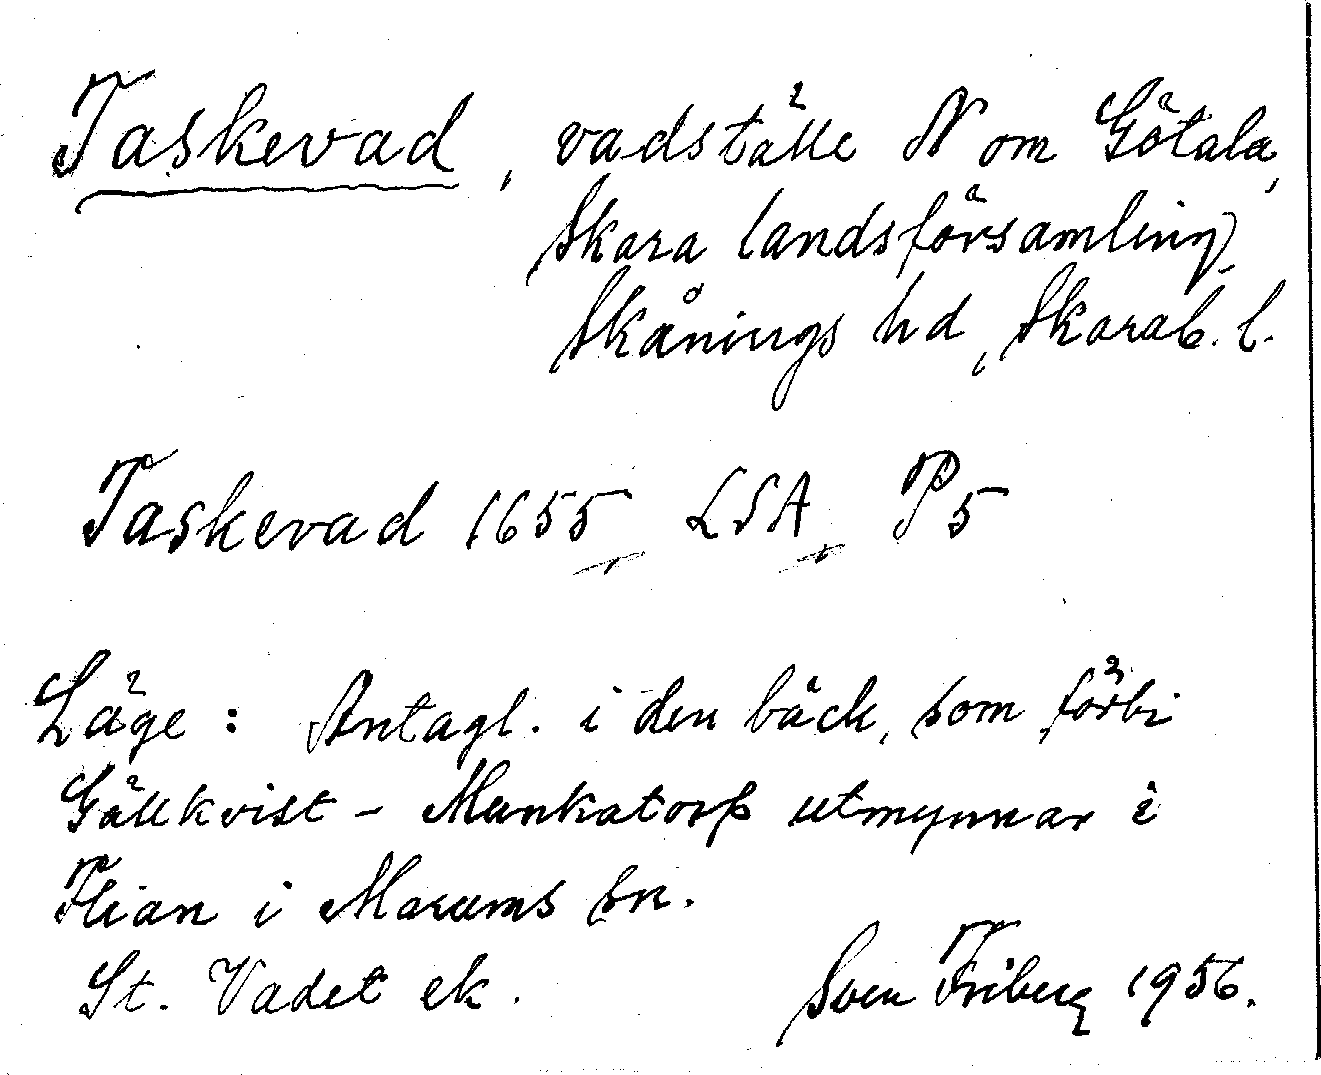 Taskevad, vadställe N om Götala,
Skara landsförsamling,
Skånings hd, Skarab. l.
Taskevad 1655 LSA P5
Läge: Antagl. i den bäck, som förbi
Gällkvist - Munkatorp utmynnar i
Flian i Marums sn.
St. Vadet ek.
Sven Friberg 1956.